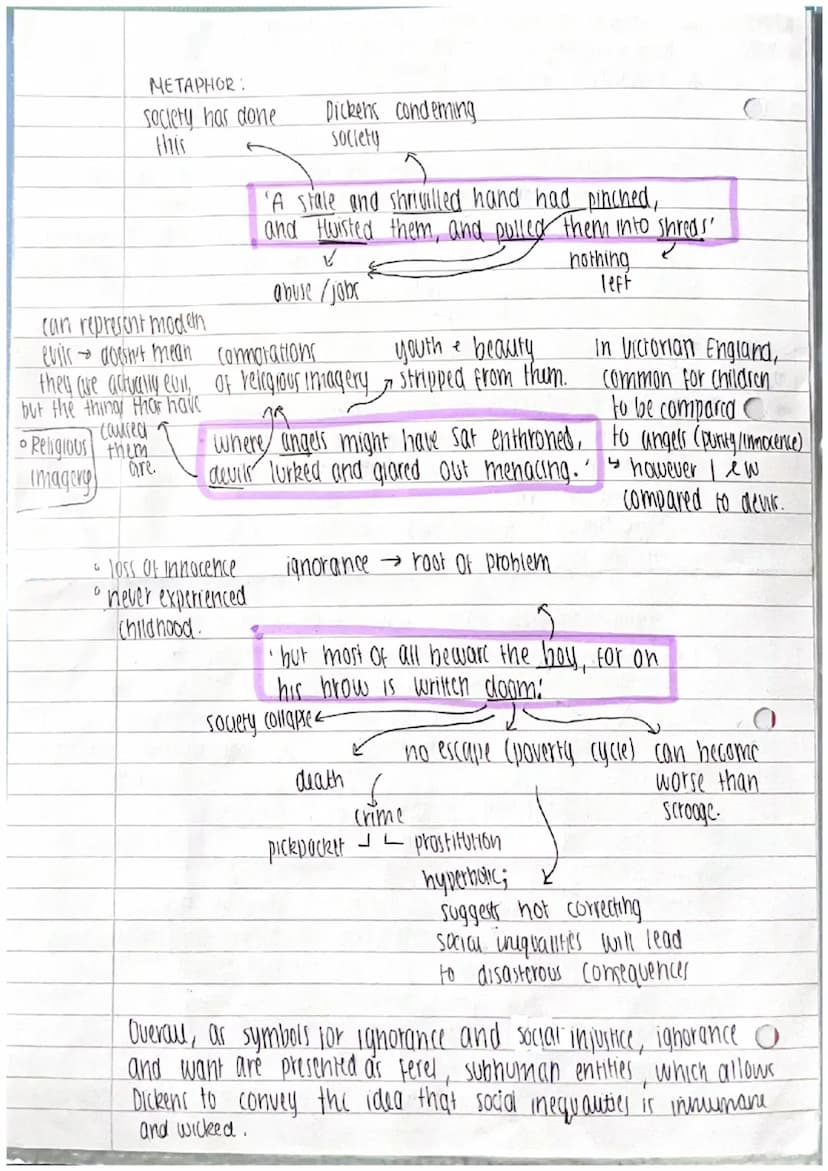 METAPHOR:
society has done
this
Dickens condeming
society
'A stale and shrivilled hand had pinched,
and twisted them, and pulled them into shreds'
abuse / jobs
nothing
left
can represent modern
evils → doesn't mean
they are actually evil,
but the things that have
caused
them
are.
connorations
of religious imagery
youth + beauty
stripped from them.
In Victorian England,
common for children
to be compared
to angels (purity/innocence)
↳ however I & W
compared to devils.
° Religious
imagery
where angels might have sat enthroned,
devils lurked and glared out menacing.'
° loss of innocence
° never experienced
childhood.
ignorance → root of problem
'but most of all beware the boy, for on
his brow is written doom'
society collapse
death
crime
pickpocket
prostitution
no escape (poverty cycle)
can become
worse than
scrooge.
hyperbolic;
suggests not correcting
social inequalities will lead
to disasterous consequences
Overall, as symbols for ignorance and social injustice, ignorance
and want are presented as feral, subhuman entities, which allows
Dickens to convey the idea that social inequalities is inhumane
and wicked.